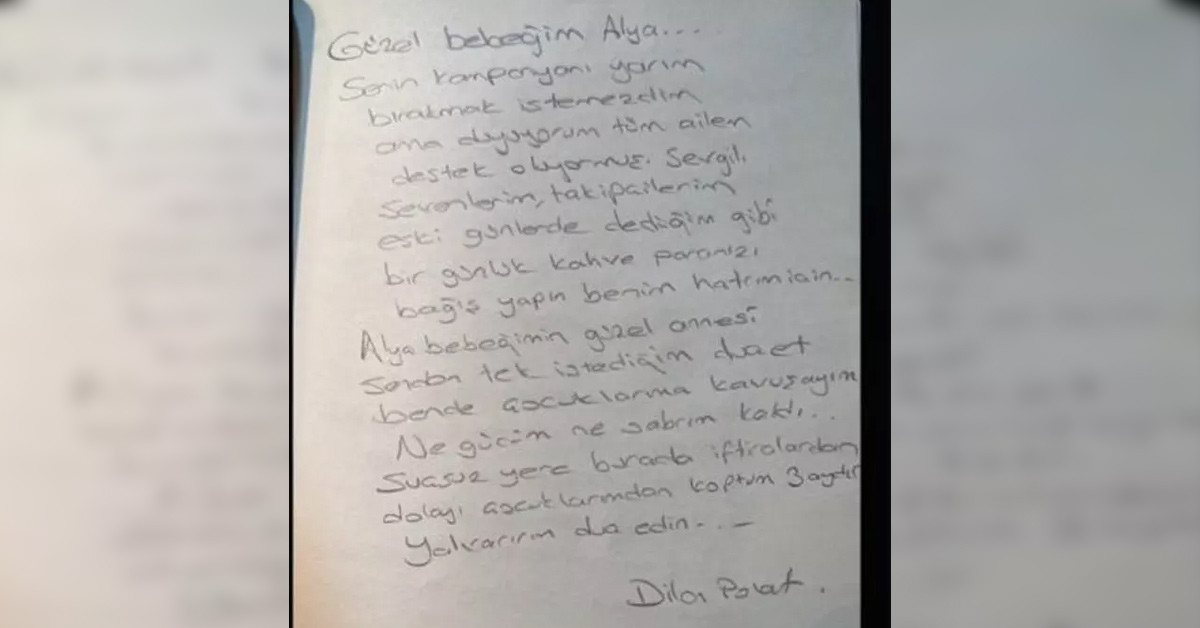 Güzel bebeğim Alya...
Senin kampanyanı yarım
bırakmak istemezdim
ama duyuyorum tüm ailem
destek oluyormuş. Sevgili
sevenlerim, takipçilerim
eski günlerde dediğim gibi
bir günlük kahve paranızı
bağış yapın benim hatrım için..
Alya bebeğimin güzel annesi
Senden tek istediğim dua et
bende çocuklarıma kavuşayım
Ne gücüm ne sabrım kaldı...
Suçsuz yere burada iftiralardan
dolayı çocuklarımdan koptum 3 aydır
Yalvarırım dua edin...
Dilan Polat.